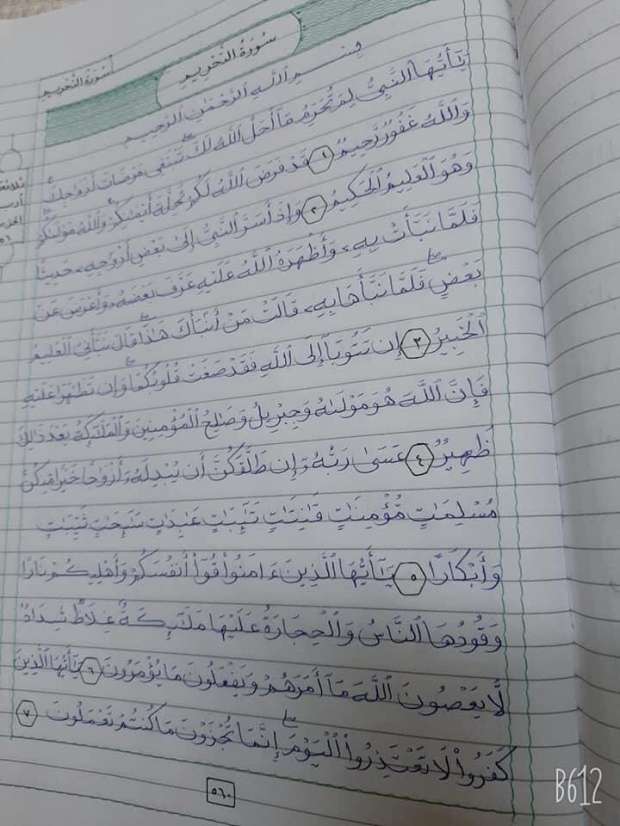 سُورَةُ التَّحْرِيمِ
سُورَةُ التَّحْرِيمِ
بِسْمِ اللَّهِ الرَّحْمَٰنِ الرَّحِيمِ
يَٰٓأَيُّهَا النَّبِيُّ لِمَ تُحَرِّمُ مَآ أَحَلَّ اللَّهُ لَكَ تَبْتَغِي مَرْضَاتَ أَزْوَٰجِكَ
وَاللَّهُ غَفُورٌ رَّحِيمٌ ١ قَدْ فَرَضَ اللَّهُ لَكُمْ تَحِلَّةَ أَيْمَٰنِكُمْ وَاللَّهُ مَوْلَىٰكُمْ
وَهُوَ الْعَلِيمُ الْحَكِيمُ ٢ وَإِذْ أَسَرَّ النَّبِيُّ إِلَىٰ بَعْضِ أَزْوَٰجِهِۦ حَدِيثًا
فَلَمَّا نَبَّأَتْ بِهِۦ وَأَظْهَرَهُ اللَّهُ عَلَيْهِ عَرَّفَ بَعْضَهُۥ وَأَعْرَضَ عَنۢ
بَعْضٍ فَلَمَّا نَبَّأَهَا بِهِۦ قَالَتْ مَنْ أَنۢبَأَكَ هَٰذَا قَالَ نَبَّأَنِيَ الْعَلِيمُ
الْخَبِيرُ ٣ إِن تَتُوبَآ إِلَى اللَّهِ فَقَدْ صَغَتْ قُلُوبُكُمَا وَإِن تَظَٰهَرَا عَلَيْهِ
فَإِنَّ اللَّهَ هُوَ مَوْلَىٰهُ وَجِبْرِيلُ وَصَٰلِحُ الْمُؤْمِنِينَ وَالْمَلَٰٓئِكَةُ بَعْدَ ذَٰلِكَ
ظَهِيرٌ ٤ عَسَىٰ رَبُّهُۥٓ إِن طَلَّقَكُنَّ أَن يُبْدِلَهُۥٓ أَزْوَٰجًا خَيْرًا مِّنكُنَّ
مُسْلِمَٰتٍ مُّؤْمِنَٰتٍ قَٰنِتَٰتٍ تَٰٓئِبَٰتٍ عَٰبِدَٰتٍ سَٰٓئِحَٰتٍ ثَيِّبَٰتٍ
وَأَبْكَارًا ٥ يَٰٓأَيُّهَا الَّذِينَ ءَامَنُوا۟ قُوٓا۟ أَنفُسَكُمْ وَأَهْلِيكُمْ نَارًا
وَقُودُهَا النَّاسُ وَالْحِجَارَةُ عَلَيْهَا مَلَٰٓئِكَةٌ غِلَاظٌ شِدَادٌ
لَّا يَعْصُونَ اللَّهَ مَآ أَمَرَهُمْ وَيَفْعَلُونَ مَا يُؤْمَرُونَ ٦ يَٰٓأَيُّهَا الَّذِينَ
كَفَرُوا۟ لَا تَعْتَذِرُوا۟ الْيَوْمَ إِنَّمَا تُجْزَوْنَ مَا كُنتُمْ تَعْمَلُونَ ٧
٥٦٠
B612